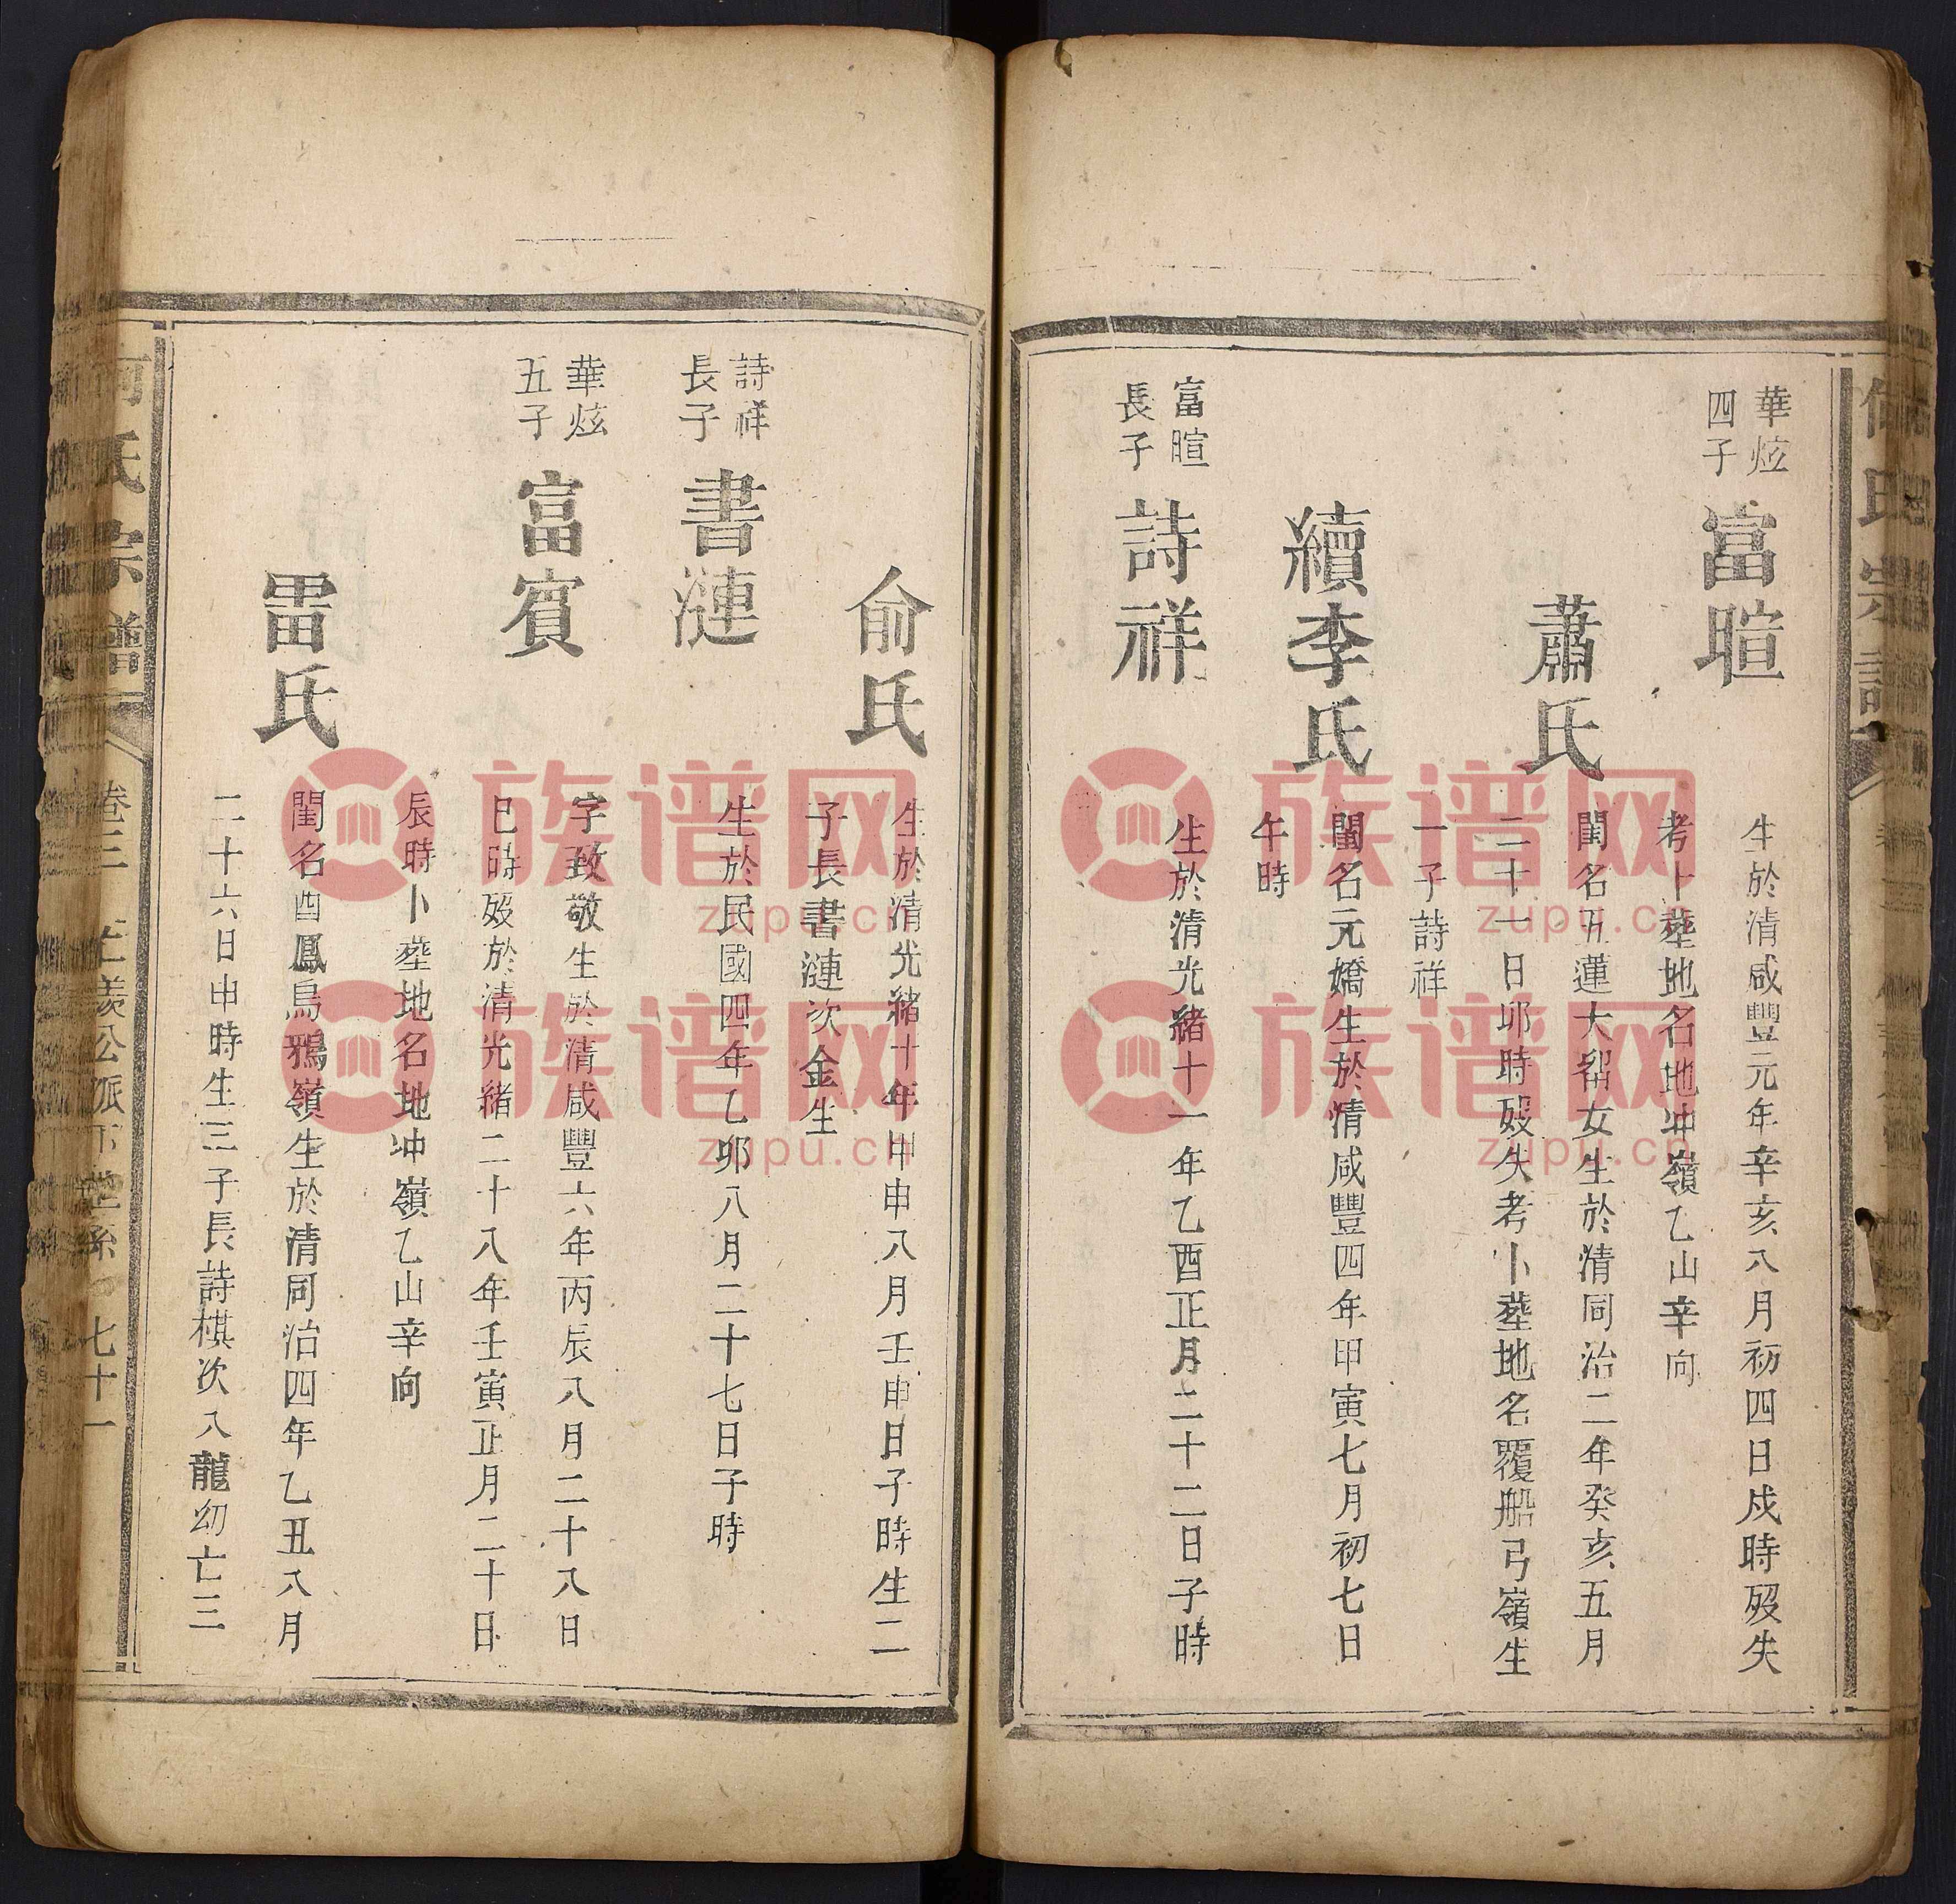 華炫
四子
富暄
生於清咸豐元年辛亥八月初四日戍時殁失
考卜塟地名地冲嶺乙山辛向
蕭氏
閨名五蓮大翮女生於清同治二年癸亥五月
二十一日卯時殁失考卜塟地名覆船弓嶺生
一子詩祥
續李氏
閨名元嬌生於清咸豐四年甲寅七月初七日
午時
富暄
長子
詩祥
生於清光緒十一年乙酉正月二十二日子時
俞氏
生於清光緒十年甲申八月壬申日子時生二
子長書漣次金生
詩祥
長子
書漣
生於民國四年乙卯八月二十七日子時
華炫
五子
富賓
字致敬生於清咸豐六年丙辰八月二十八日
巳時殁於清光緒二十八年壬寅正月二十日
辰時卜塟地名地冲嶺乙山辛向
雷氏
閨名酉鳳烏鴉嶺生於清同治四年乙丑八月
二十六日申時生三子長詩棋次八龍幼亡三
何氏宗譜
卷三
公派下世系
七十一
族谱网
zupu.cn
族谱网
zupu.cn
族谱网
zupu.cn
族谱网
zupu.cn